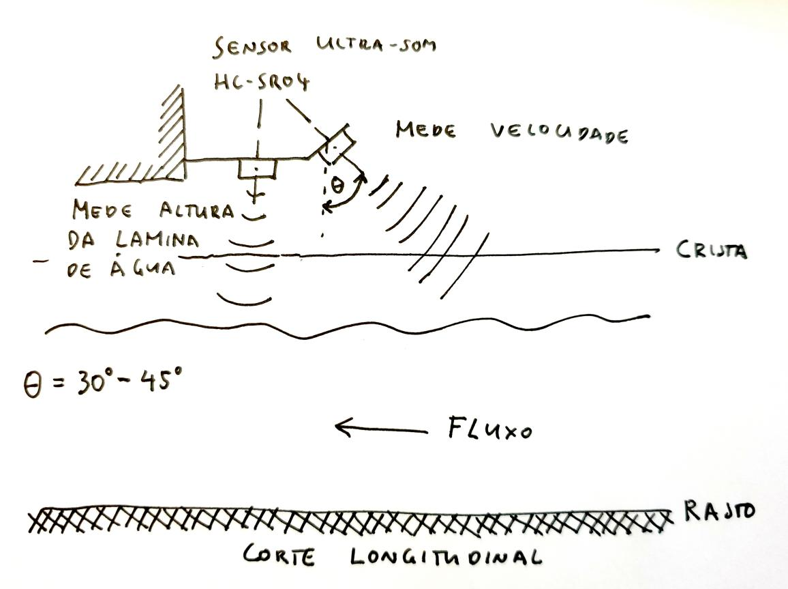 SENSOR ULTRA-SOM
HC-SR04
MEDE VELOCIDADE
θ
MEDE ALTURA
DA LAMINA
DE ÁGUA
CRISTA
θ = 30° - 45°
FLUXO
RASTO
CORTE LONGITUDINAL